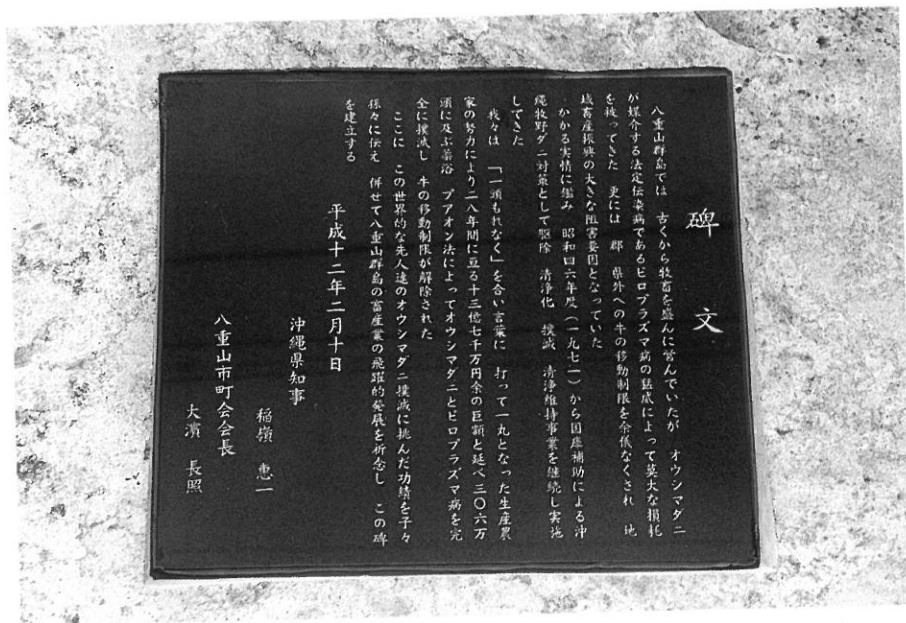 碑文
八重山群島では 古くから牧畜を盛んに営んでいたが オウシマダニ
が媒介する法定伝染病であるピロプラズマ病の猛威によって莫大な損耗
を被ってきた 更には 郡 県外への牛の移動制限を余儀なくされ 地
域畜産振興の大きな阻害要因となっていた
かかる実情に鑑み 昭和四六年度(一九七一)から国庫補助による沖
縄牧野ダニ対策として駆除 清浄化 撲滅 清浄維持事業を継続し実施
してきた
我々は 「一頭もれなく」を合い言葉に 打って一丸となった生産農
家の努力により二八年間に亘る十三億七千万円余の巨額と延べ三〇六万
頭に及ぶ薬浴 プアオン法によってオウシマダニとピロプラズマ病を完
全に撲滅し 牛の移動制限が解除された
ここに この世界的な先人達のオウシマダニ撲滅に挑んだ功績を子々
孫々に伝え 併せて八重山群島の畜産業の飛躍的発展を祈念し この碑
を建立する
平成十二年二月十日
沖縄県知事
稲嶺 惠一
八重山市町会会長
大濵 長照